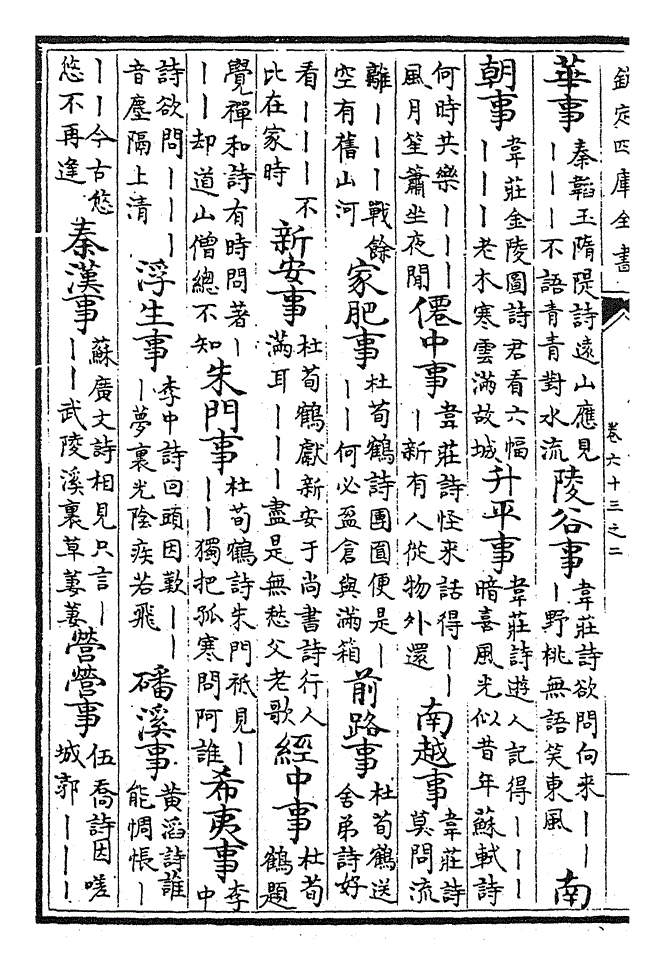 欽定四庫全書
卷六十三之二
華事
秦韜玉隋隄詩遠山應見
｜｜｜不語青青對水流
陵谷事
韋莊詩欲問向來｜｜
｜野桃無語笑東風
南
朝事
韋莊金陵圖詩君看六幅
｜｜｜老木寒雲滿故城
升平事
韋莊詩遊人記得｜｜｜
暗喜風光似昔年蘇軾詩
何時共樂｜｜｜
風月笙簫坐夜閒
僊中事
韋莊詩怪來話得｜｜
｜新有人從物外還
南越事
韋莊詩
莫問流
離｜｜｜戰餘
空有舊山河
家肥事
杜荀鶴詩團圓便是｜
｜｜何必盈倉與滿箱
前路事
杜荀鶴送
舍弟詩好
看｜｜｜不
比在家時
新安事
杜荀鶴獻新安于尚書詩行人
滿耳｜｜｜盡是無愁父老歌
經中事
杜荀
鶴題
覺禪和詩有時問著｜
｜｜却道山僧總不知
朱門事
杜荀鶴詩朱門秪見｜
｜｜獨把孤寒問阿誰
希夷事
李
中
詩欲問｜｜｜
音塵隔上清
浮生事
李中詩回頭因歎｜｜
｜夢裏光陰疾若飛
磻溪事
黃滔詩誰
能惆悵｜
｜｜今古悠
悠不再逢
秦漢事
蘇廣文詩相見只言｜
｜｜武陵溪裏草萋萋
營營事
伍喬詩因嗟
城郭｜｜｜